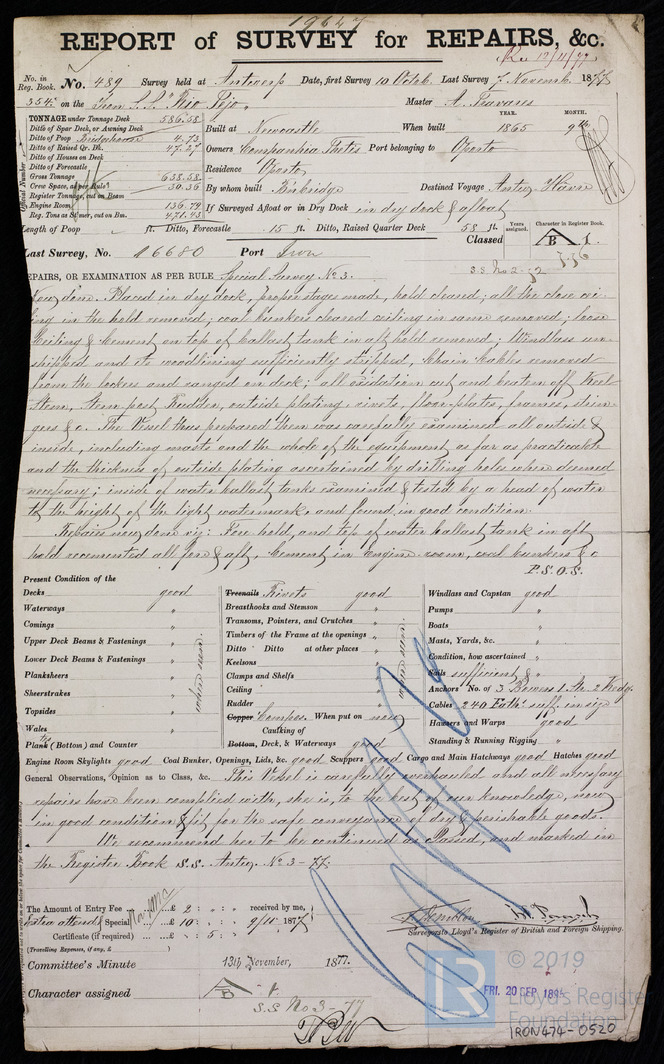 19647
REPORT of SURVEY for REPAIRS, &c.
Rec 12/11/77
No. in Reg. Book. No. 489 Survey held at Antwerp Date, first Survey 10 Octob. Last Survey 7 Novemb. 1877
354 on the Iron S.S. "Rio Tejo" Master A. Tavares
TONNAGE under Tonnage Deck 586.58
Ditto of Spar Deck, or Awning Deck
Ditto of Poop Bridgehouse 4.73
Ditto of Raised Qr. Dk. 47.27
Ditto of Houses on Deck
Ditto of Forecastle
Gross Tonnage 638.58
Crew Space, as per Rule 30.36
Register Tonnage, cut on Beam
Engine Room 136.79
Reg. Tons as Steamer, cut on Bm. 471.43
Official Number
YEAR. MONTH.
Built at Newcastle When built 1865 9th
Owners Companhia Port belonging to Oporto
Residence Oporto
By whom built Destined Voyage Antwp Havre
If Surveyed Afloat or in Dry Dock in dry dock & afloat
Length of Poop ft. Ditto, Forecastle 15 ft. Ditto, Raised Quarter Deck 58 ft.
Classed Years assigned. Character in Register Book.
A B 1.
Last Survey, No. 16680 Port Iron
S.S. No 2-72
REPAIRS, OR EXAMINATION AS PER RULE Special Survey No. 3.
Now done. Placed in dry dock, proper stages made, hold cleared; all the close cei-
ling in the hold removed; coal bunkers cleared ceiling in same removed; loose
ceiling & cement on top of ballast tank in aft hold removed; Windlass un-
shipped and its woodlining sufficiently stripped, Chain Cables removed
from the lockers and ranged on deck; all oxidation cut and beaten off Keel
Stem, stern post Rudder, outside plating, rivets, floor plates, frames, strin-
gers &c. The Vessel thus prepared then was carefully examined all outside &
inside, including masts and the whole of the equipment as far as practicable
and the thickness of outside plating ascertained by drilling holes where deemed
necessary; inside of water ballast tanks examined & tested by a head of water
to the height of the light watermark, and found in good condition.
Repairs now done viz: Fore hold, and top of water ballast tank in aft
hold recemented all fore & aft, cement in engine room, coal bunkers &c
P.S.O.S.
Present Condition of the
Decks good
Waterways "
Comings "
Upper Deck Beams & Fastenings "
Lower Deck Beams & Fastenings "
Planksheers "
Sheerstrakes "
Topsides "
Wales "
Plank (Bottom) and Counter
where seen.
Treenails Rivets good
Breasthooks and Stemson "
Transoms, Pointers, and Crutches "
Timbers of the Frame at the openings "
Ditto Ditto at other places "
Keelsons "
Clamps and Shelfs "
Ceiling "
Rudder "
Copper Compos. When put on new
Caulking of
Bottom, Deck, & Waterways good
where seen.
Windlass and Capstan good
Pumps "
Boats "
Masts, Yards, &c. "
Condition, how ascertained "
Sails sufficient & "
Anchors No. of 3 Bowers 1 Str. 2 Kedg.
Cables 240 Fath.
Hawsers and Warps good
Standing & Running Rigging "
Engine Room Skylights good Coal Bunker, Openings, Lids, &c. good Scuppers good Cargo and Main Hatchways good Hatches good
General Observations, Opinion as to Class, &c. This Vessel is carefully overhauled and all necessary
repairs have been complied with, she is, to the best of our knowledge, now
in good condition & fit for the safe conveyance of dry & perishable goods.
We recommend her to be continued as Classed, and marked in
the Register Book S.S. Antwp. No. 3-77.
The Amount of Entry Fee ... £ 2 : " : " received by me,
Extra attend. Special ... £ 10 : " : " 9/11 1877
Certificate (if required) ... £ " 5 : "
(Travelling Expenses, if any, £ )
Surveyors to Lloyd's Register of British and Foreign Shipping.
Committee's Minute 13th November, 1877.
Character assigned A B 1.
S.S No 3-77
FRI. 20 SEP. 189
© 2019
LR
Lloyd's Register
Foundation
IRON474-0520